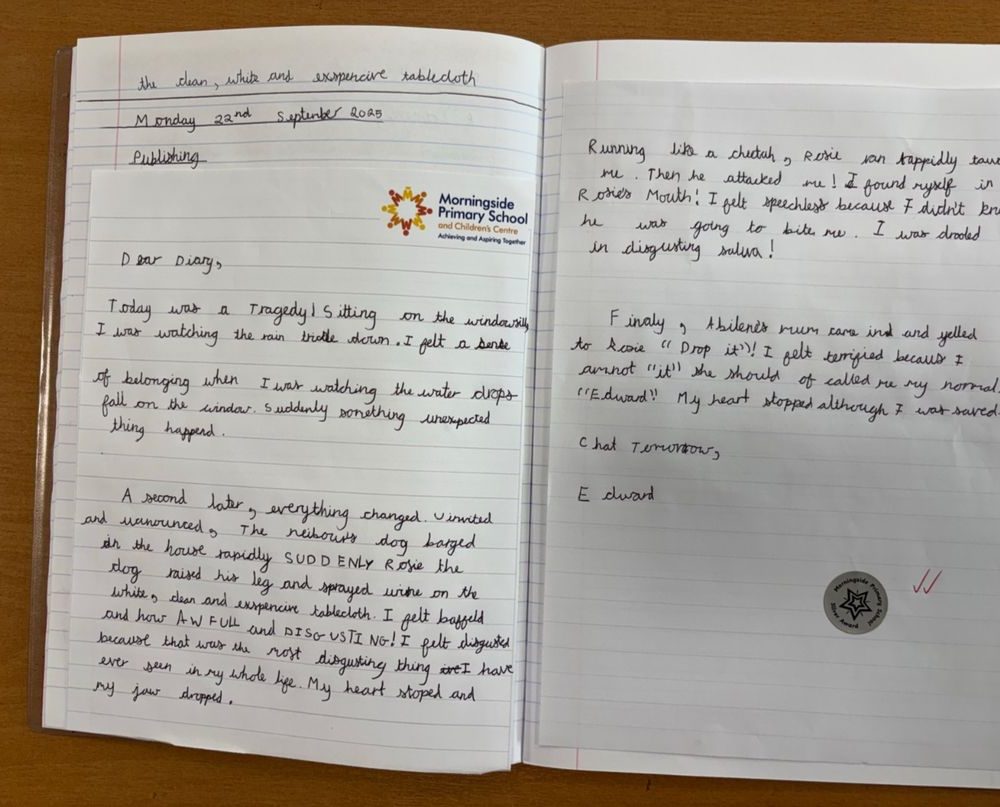 the clean, white and exspencive tablecloth
Monday 22nd September 2025
Publishing
Morningside
Primary School
and Children's Centre
Achieving and Aspiring Together
Dear Diary,
Today was a Tragedy! Sitting on the windowsill,
I was watching the rain trickle down. I felt a sense
of belonging when I was watching the water drops
fall on the window. Suddenly somthing unexpected
thing happend.
A second later, everything changed. Uninvited
and unanounced, The neibours dog barged
in the house rapidly SUDDENLY Rosie the
dog raised his leg and sprayed urine on the
white, clean and exspencive tablecloth. I felt baffeld
and how AWFULL and DISGUSTING! I felt disgusted
because that was the most disgusting thing I have
ever seen in my whole life. My heart stoped and
my jaw dropped.
Running like a cheetah, Rosie ran rappidly taw
me. Then he attacked me! I found myself in
Rosie's Mouth! I felt speechless because I didn't kn
he was going to bite me. I was drooled
in disgusting saliva!
Finaly, Abilene's mum came in and yelled
to Rosie "Drop it"! I felt terrified becaus I
amnot "it" she should of called me my normal
"Edward" My heart stopped although I was saved.
Chat Tomorrow,
Edward
Morningside Primary School
Silver Award